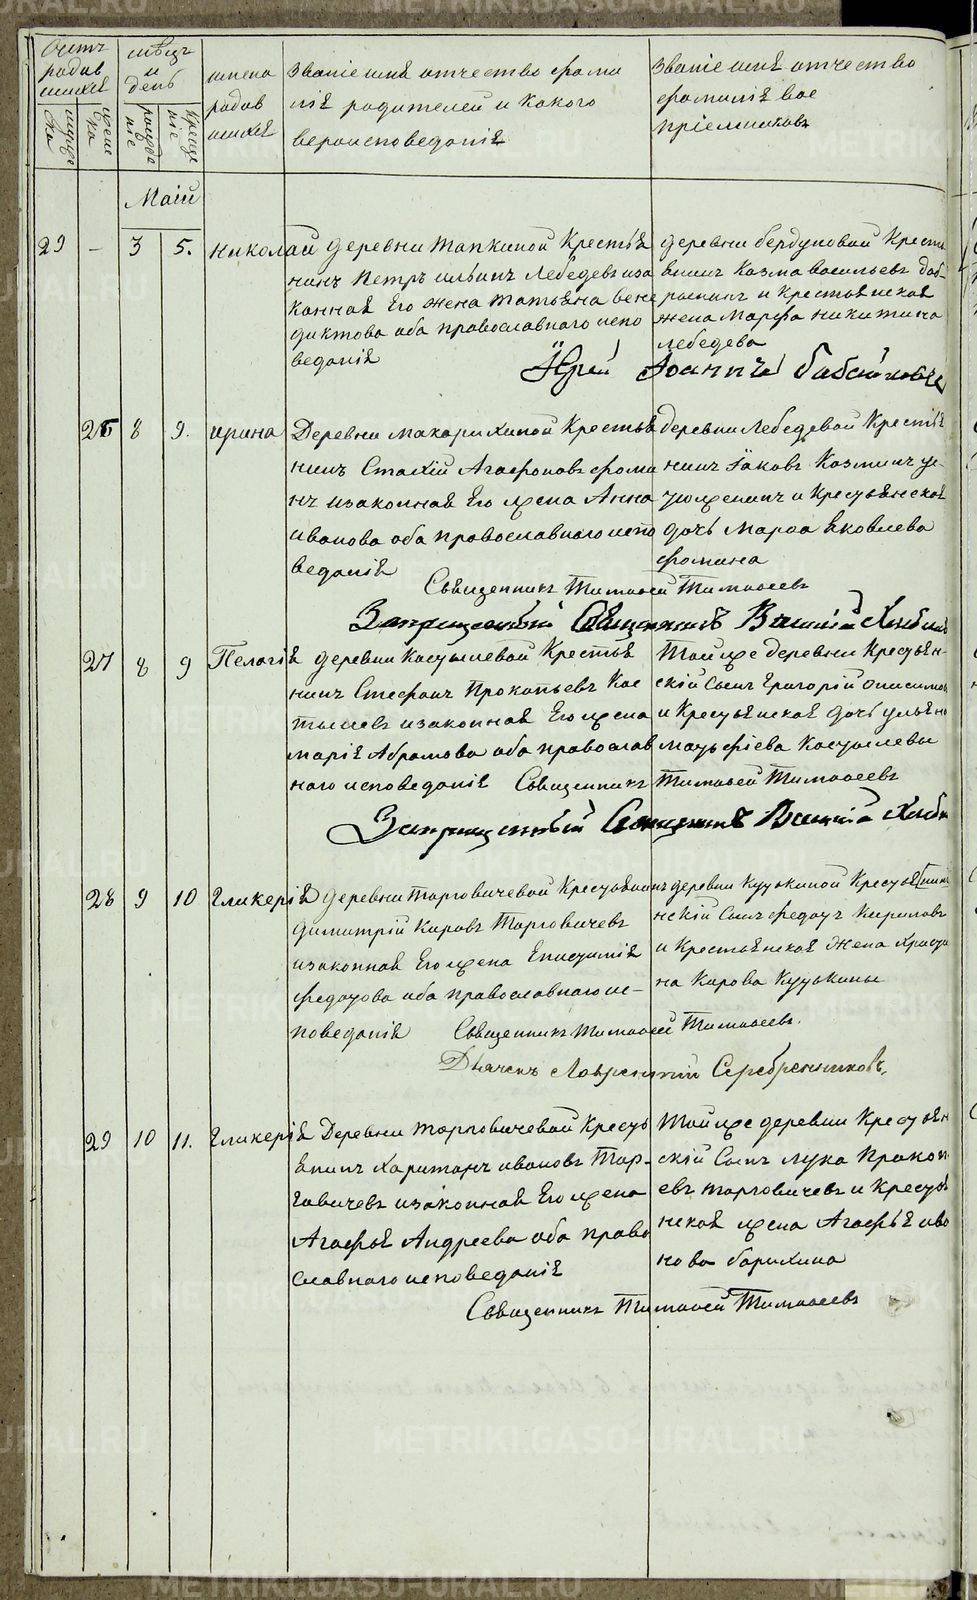 Счетъ родив шихся
мѣсяцъ и день
имена родив шихся
Званіе имя отчество фами
лія родителей и какого
вероисповеданія
Званіе имя отчество
фамилія вос
пріемниковъ
рожде ніе
креще ніе
Маій
29 — 3 5. Николай деревни Тапкиной Крестья
нинъ Петръ ильинъ Лебедевъ иза
конная Его жена Татьяна вене
диктова оба православнаго испо
веданія
деревни бердуновой Крестья
нинъ Козма васильевъ
и Крестьянская
жена Марфа никитина
лебедева
Іерей Іоаннъ
26 8 9. ирина Деревни Макарихиной Крестья
нинъ Стахій Агафоновъ фоми
нъ изаконная Его жена Анна
иванова оба православнаго испо
веданія
деревни Лебедевой Крестья
нинъ Іаковъ Козминъ
и Крестьянская
дочь Марѳа Яковлева
фомина
Священникъ Тимоѳей Тимоѳеевъ
Запрещенный Священникъ
27 8 9 Пелагія деревни Костылевой Крестья
нинъ Стефанъ Прокопьевъ Кос
тылевъ изаконная Его жена
марія Абрамова оба православ
наго исповеданія
Той же деревни Крестьян
скій Сынъ Григорій Онисимов
и Крестьянская дочь ульяна
матьфіева Костылевы
Священникъ Тимоѳей Тимоѳеевъ
Запрещенный Священникъ
28 9 10 Гликерія деревни Торговичевой Крестьянинъ
димитрій Карпъ Торговичевъ
изаконная Его жена Епистимія
федотова оба православнаго ис-
поведанія
деревни Кузькиной Крестья
нскій Сынъ федотъ Кириловъ
и Крестьянская жена Христи
на Карова Кузькины
Священникъ Тимоѳей Тимоѳеевъ.
Дьячекъ Лаврентій Серебренниковъ.
29 10 11. Гликерія Деревни торговичевой Кресть
янинъ Харитонъ ивановъ Тор-
говичевъ изаконная Его жена
Агафья Андреева оба право
славнаго исповеданія
Той же деревни Крестьян
скій Сынъ лука Прокоп
евъ торговичевъ и Крестья
нская жена Агафья ива
нова барихина
Священникъ Тимоѳей Тимоѳеевъ
METRIKI.GASO-URAL.RU